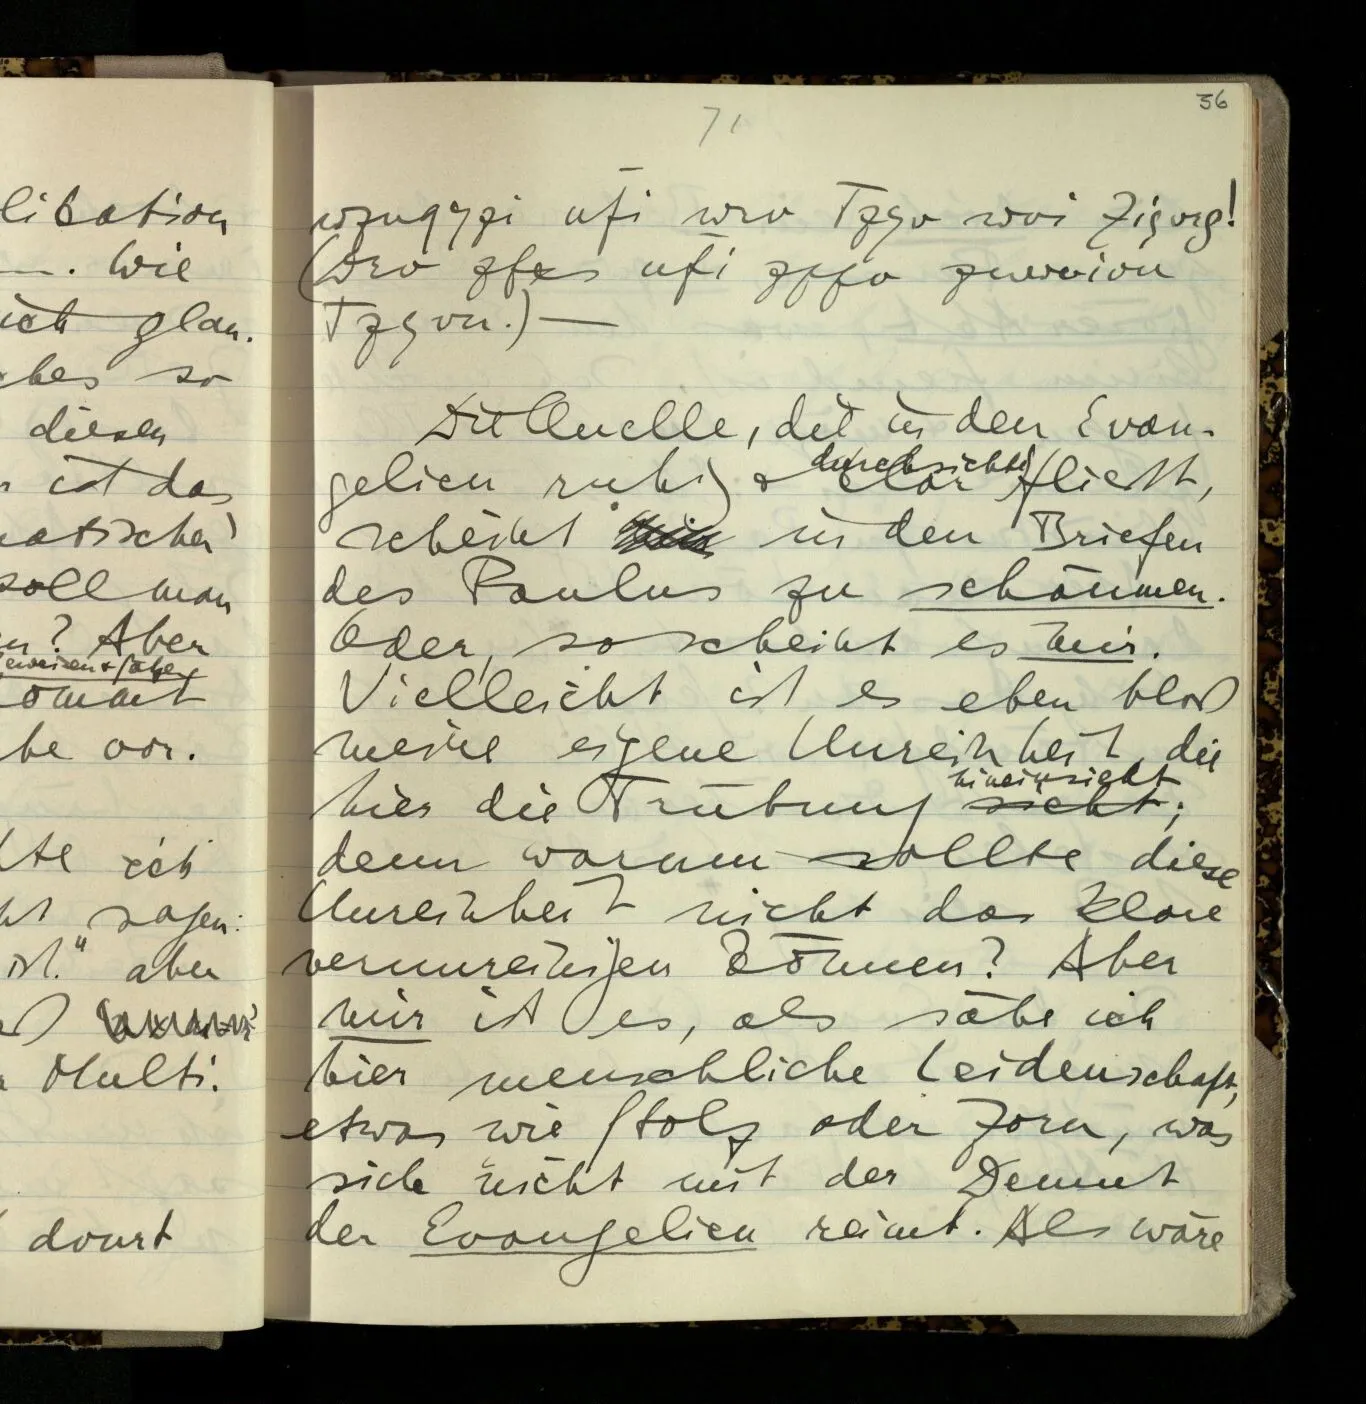 likation
Wie
ich glau-
ches so
diesen
ist das
soll man
Aber
kommt
be vor.
ich
sagen:
ist." aber
Multi-
36
71
Die Quelle, die in den Evan-
gelien ruhig & durchsichtig klar fließt,
scheint in den Briefen
des Paulus zu schäumen.
Oder, so scheint es mir.
Vielleicht ist es eben bloß
meine eigene Unreinheit, die
hier die Trübung hineinsieht sieht;
denn warum sollte diese
Unreinheit nicht das klare
verunreinigen können? Aber
mir ist es, als sähe ich
hier menschliche Leidenschaft,
etwas wie Stolz oder Zorn, was
sich nicht mit der Demut
der Evangelien reimt. Als wäre